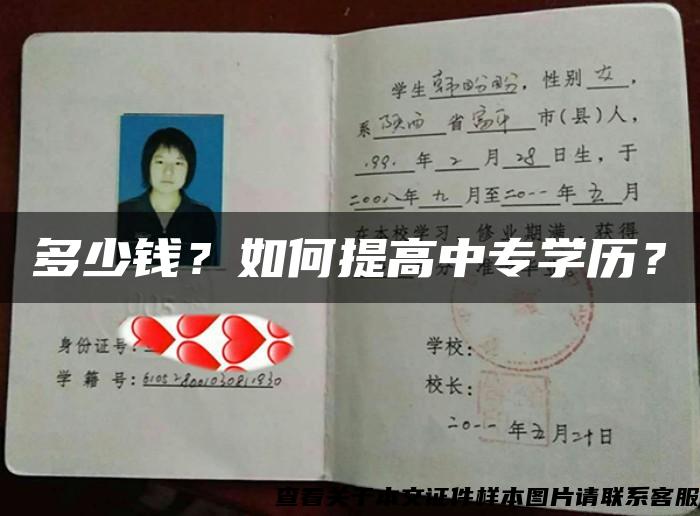 学生韩盼盼，性别女，
系陕西省富平市(县)人，
1991.年2月28日生，于
二00八年九月至二0一一年五月
在本校学习，修业期满，获得
多少钱？如何提高中专学历？
身份证号：
学籍号：610528001030811930
学校：
校长：
二0一一年五月二十日
查看关于本文证件样本图片请联系客服